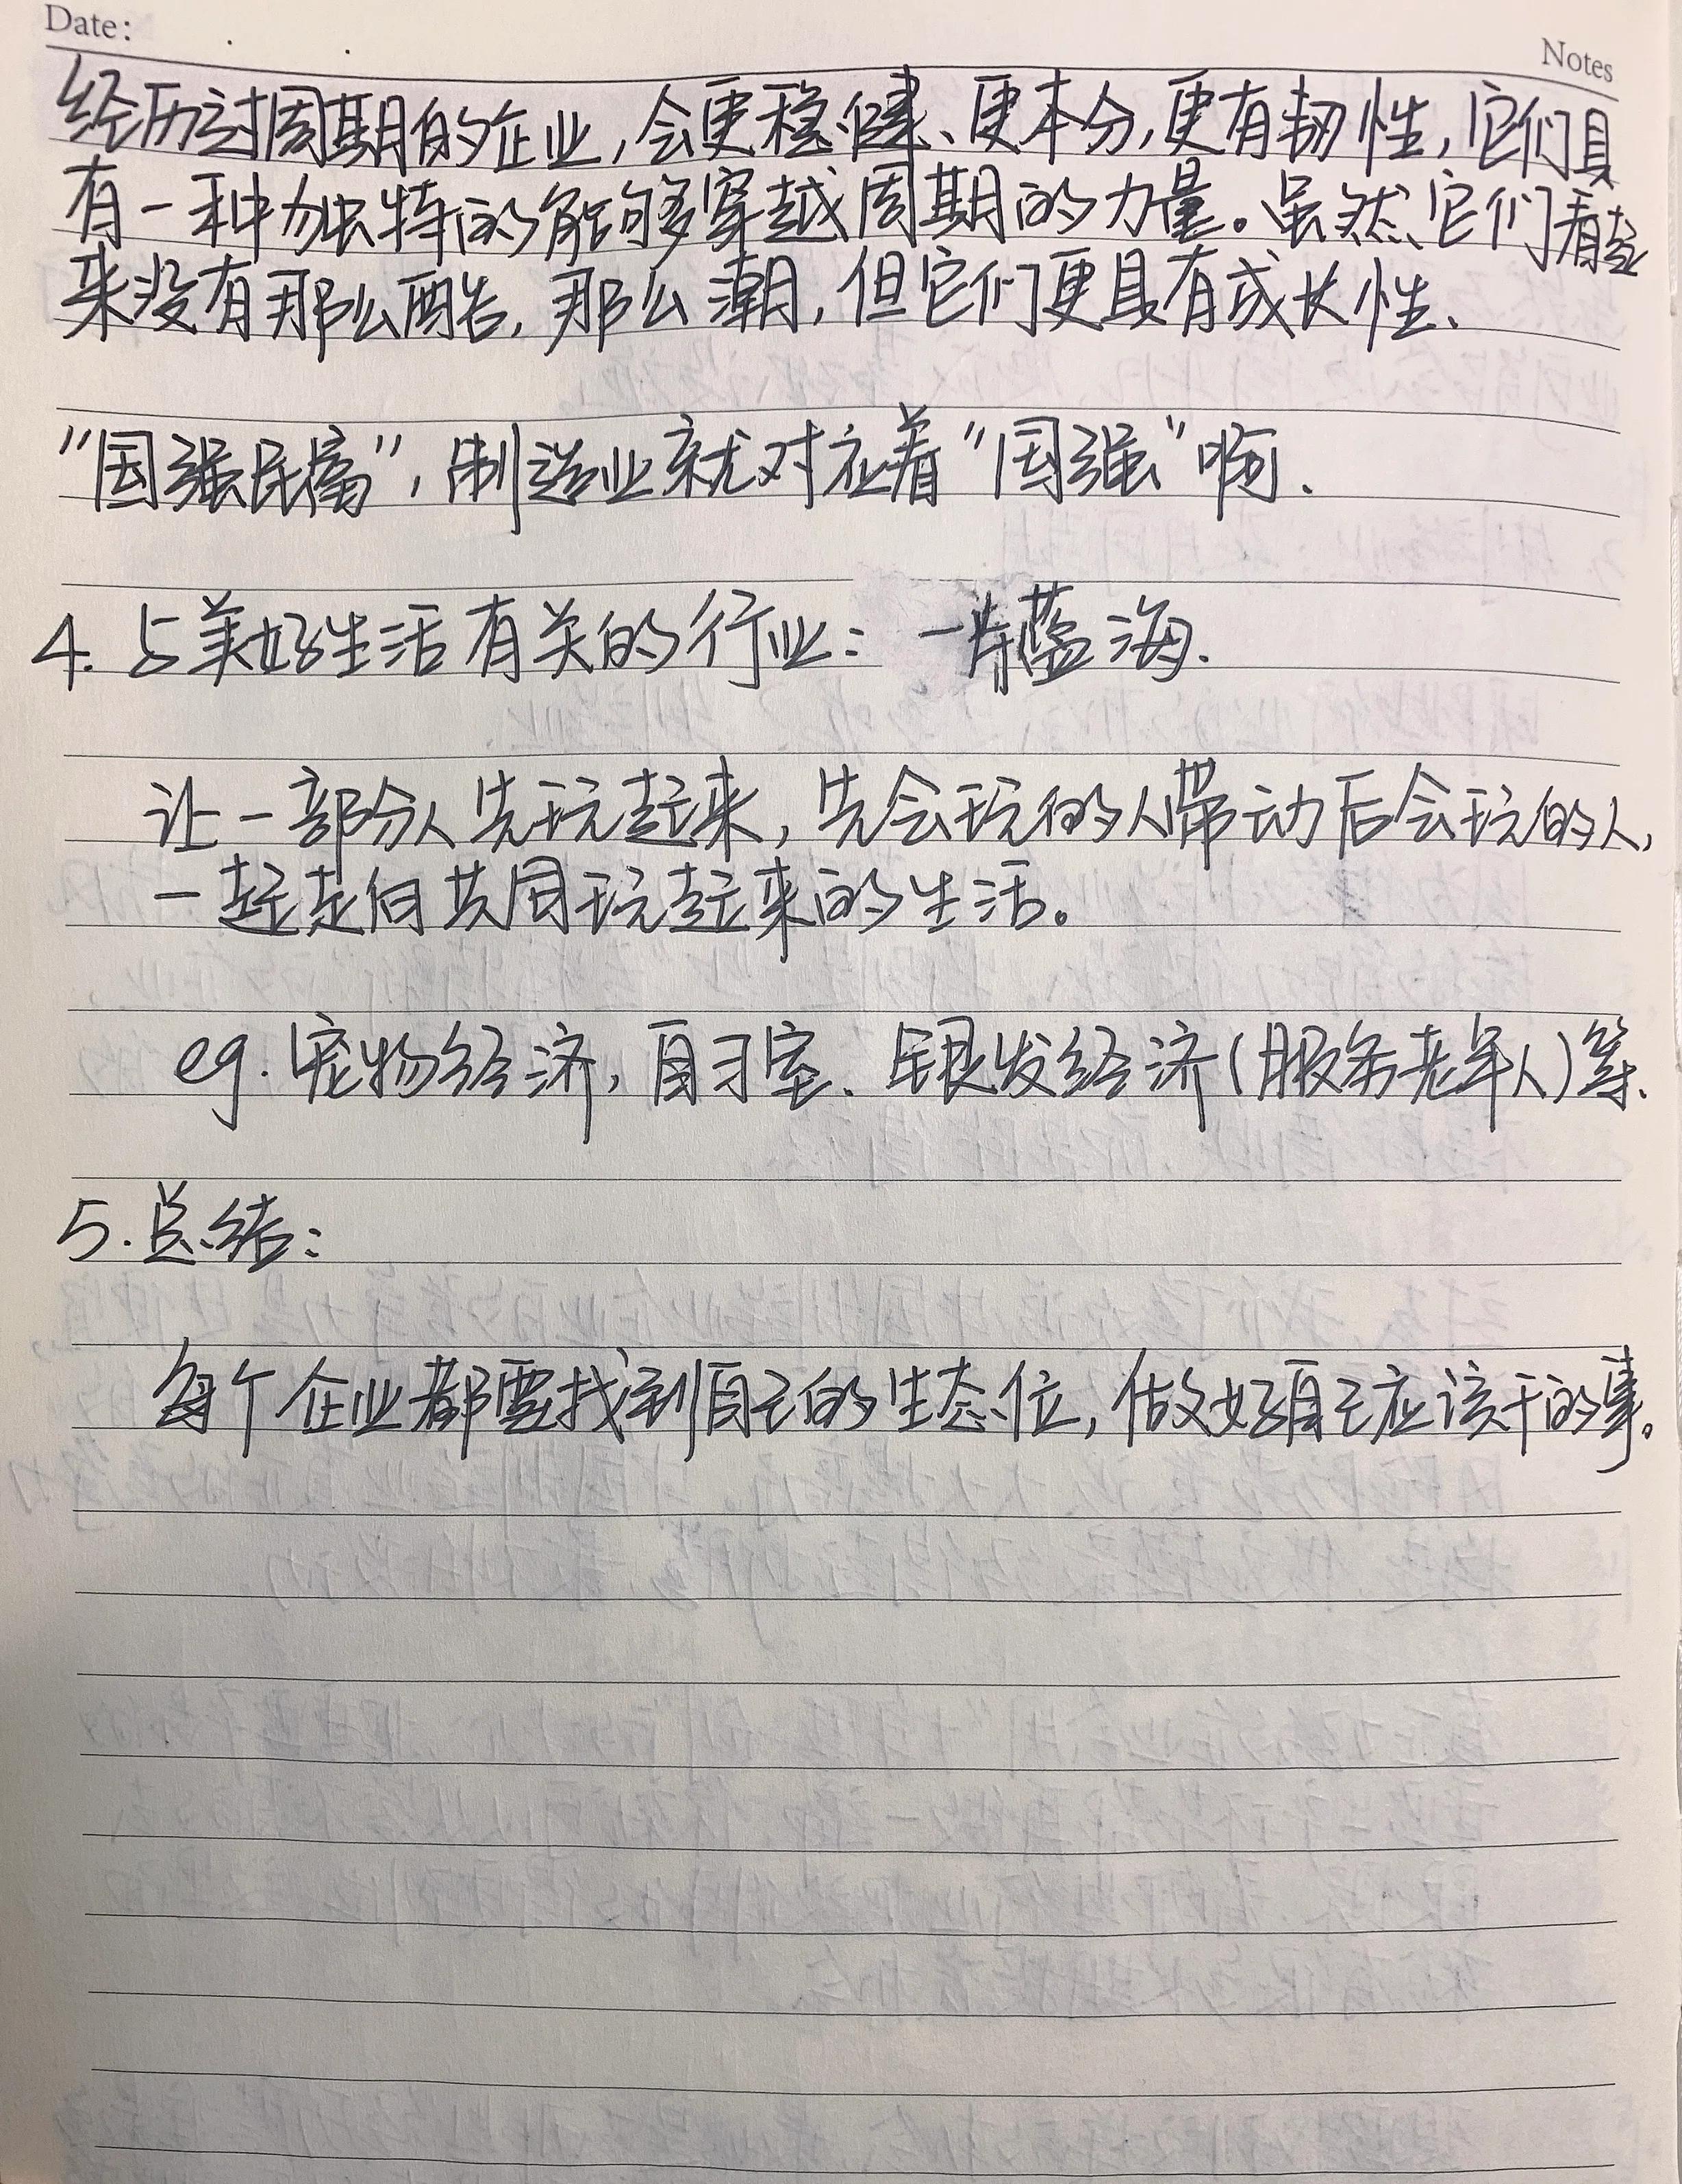 Date:
Notes
经历过周期的企业,会更稳健、更本分,更有韧性,它们具
有一种独特的能够穿越周期的力量。虽然它们看起
来没有那么酷,那么潮,但它们更具有成长性、
"国强民富",制造业就对应着"国强"啊.
4. 与美好生活有关的行业: 一片蓝海.
让一部分人先玩起来,先会玩的人带动后会玩的人,
一起走向共同玩起来的生活。
eg. 宠物经济,自习室、银发经济(服务老年人)等、
5.总结:
每个企业都要找到自己的生态位,做好自己应该干的事。